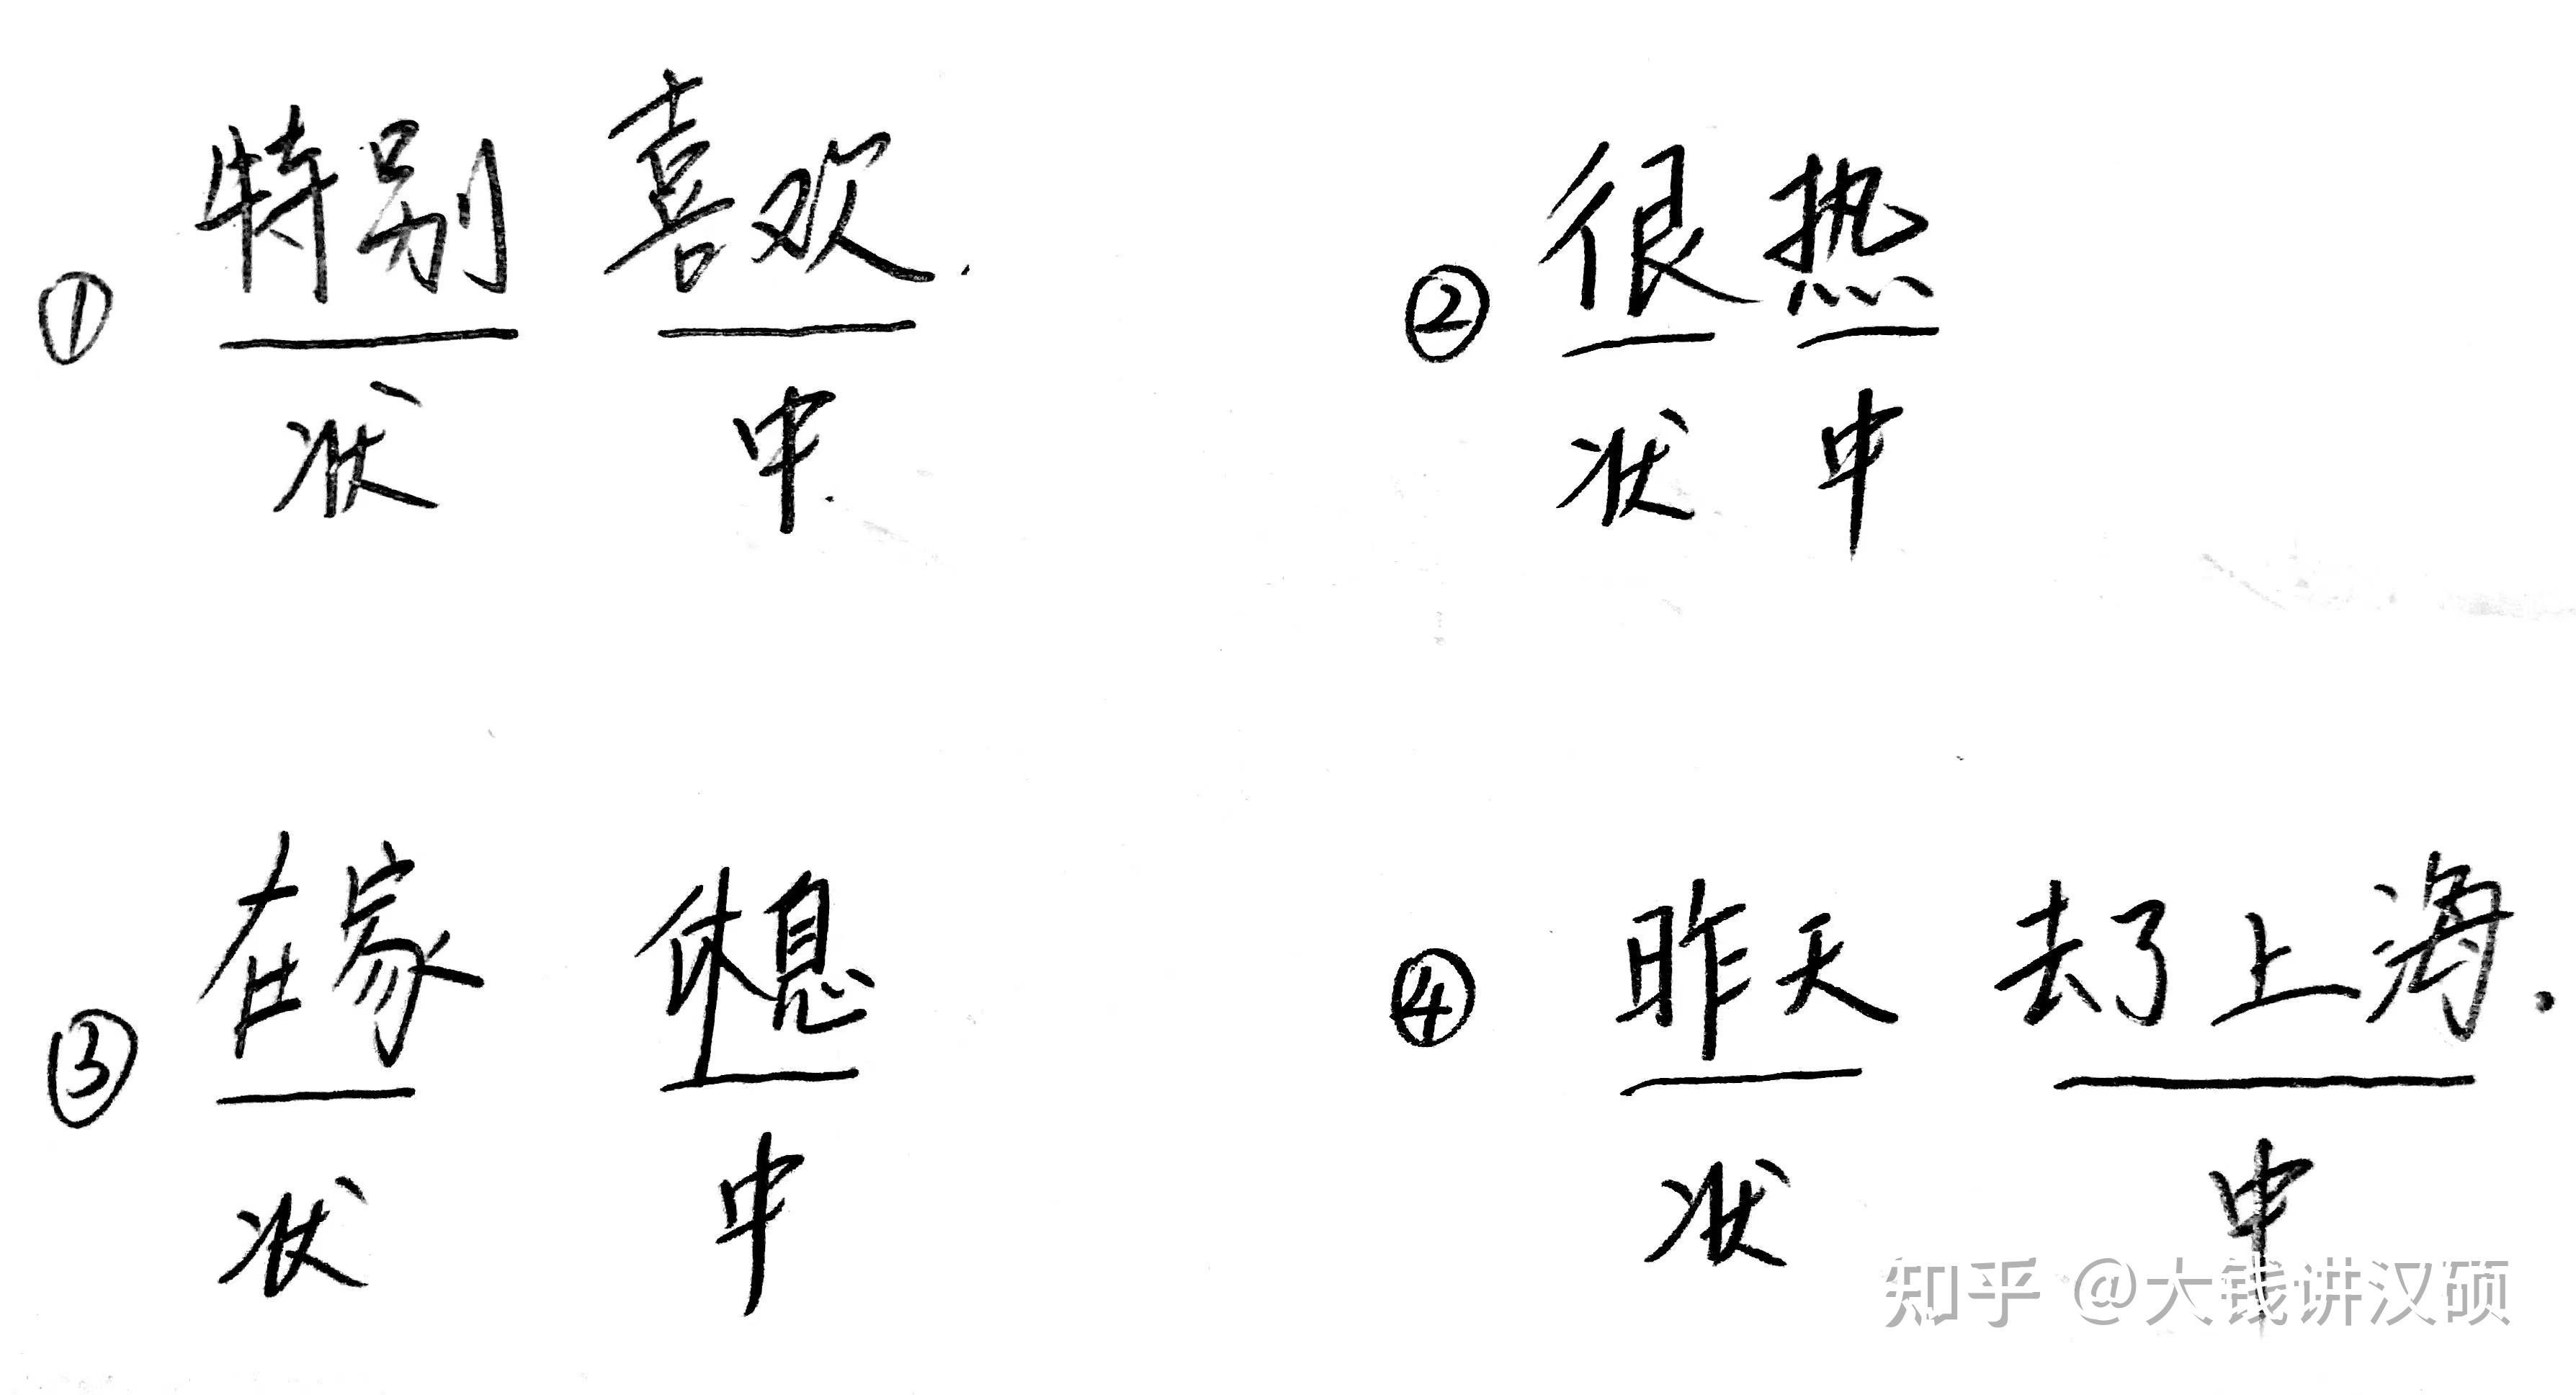 ① 特别 喜欢.
状 中.
② 很热
状 中
③ 在家 休息
状 中
④ 昨天 去了上海.
状 中
知乎 @大钱讲汉硕